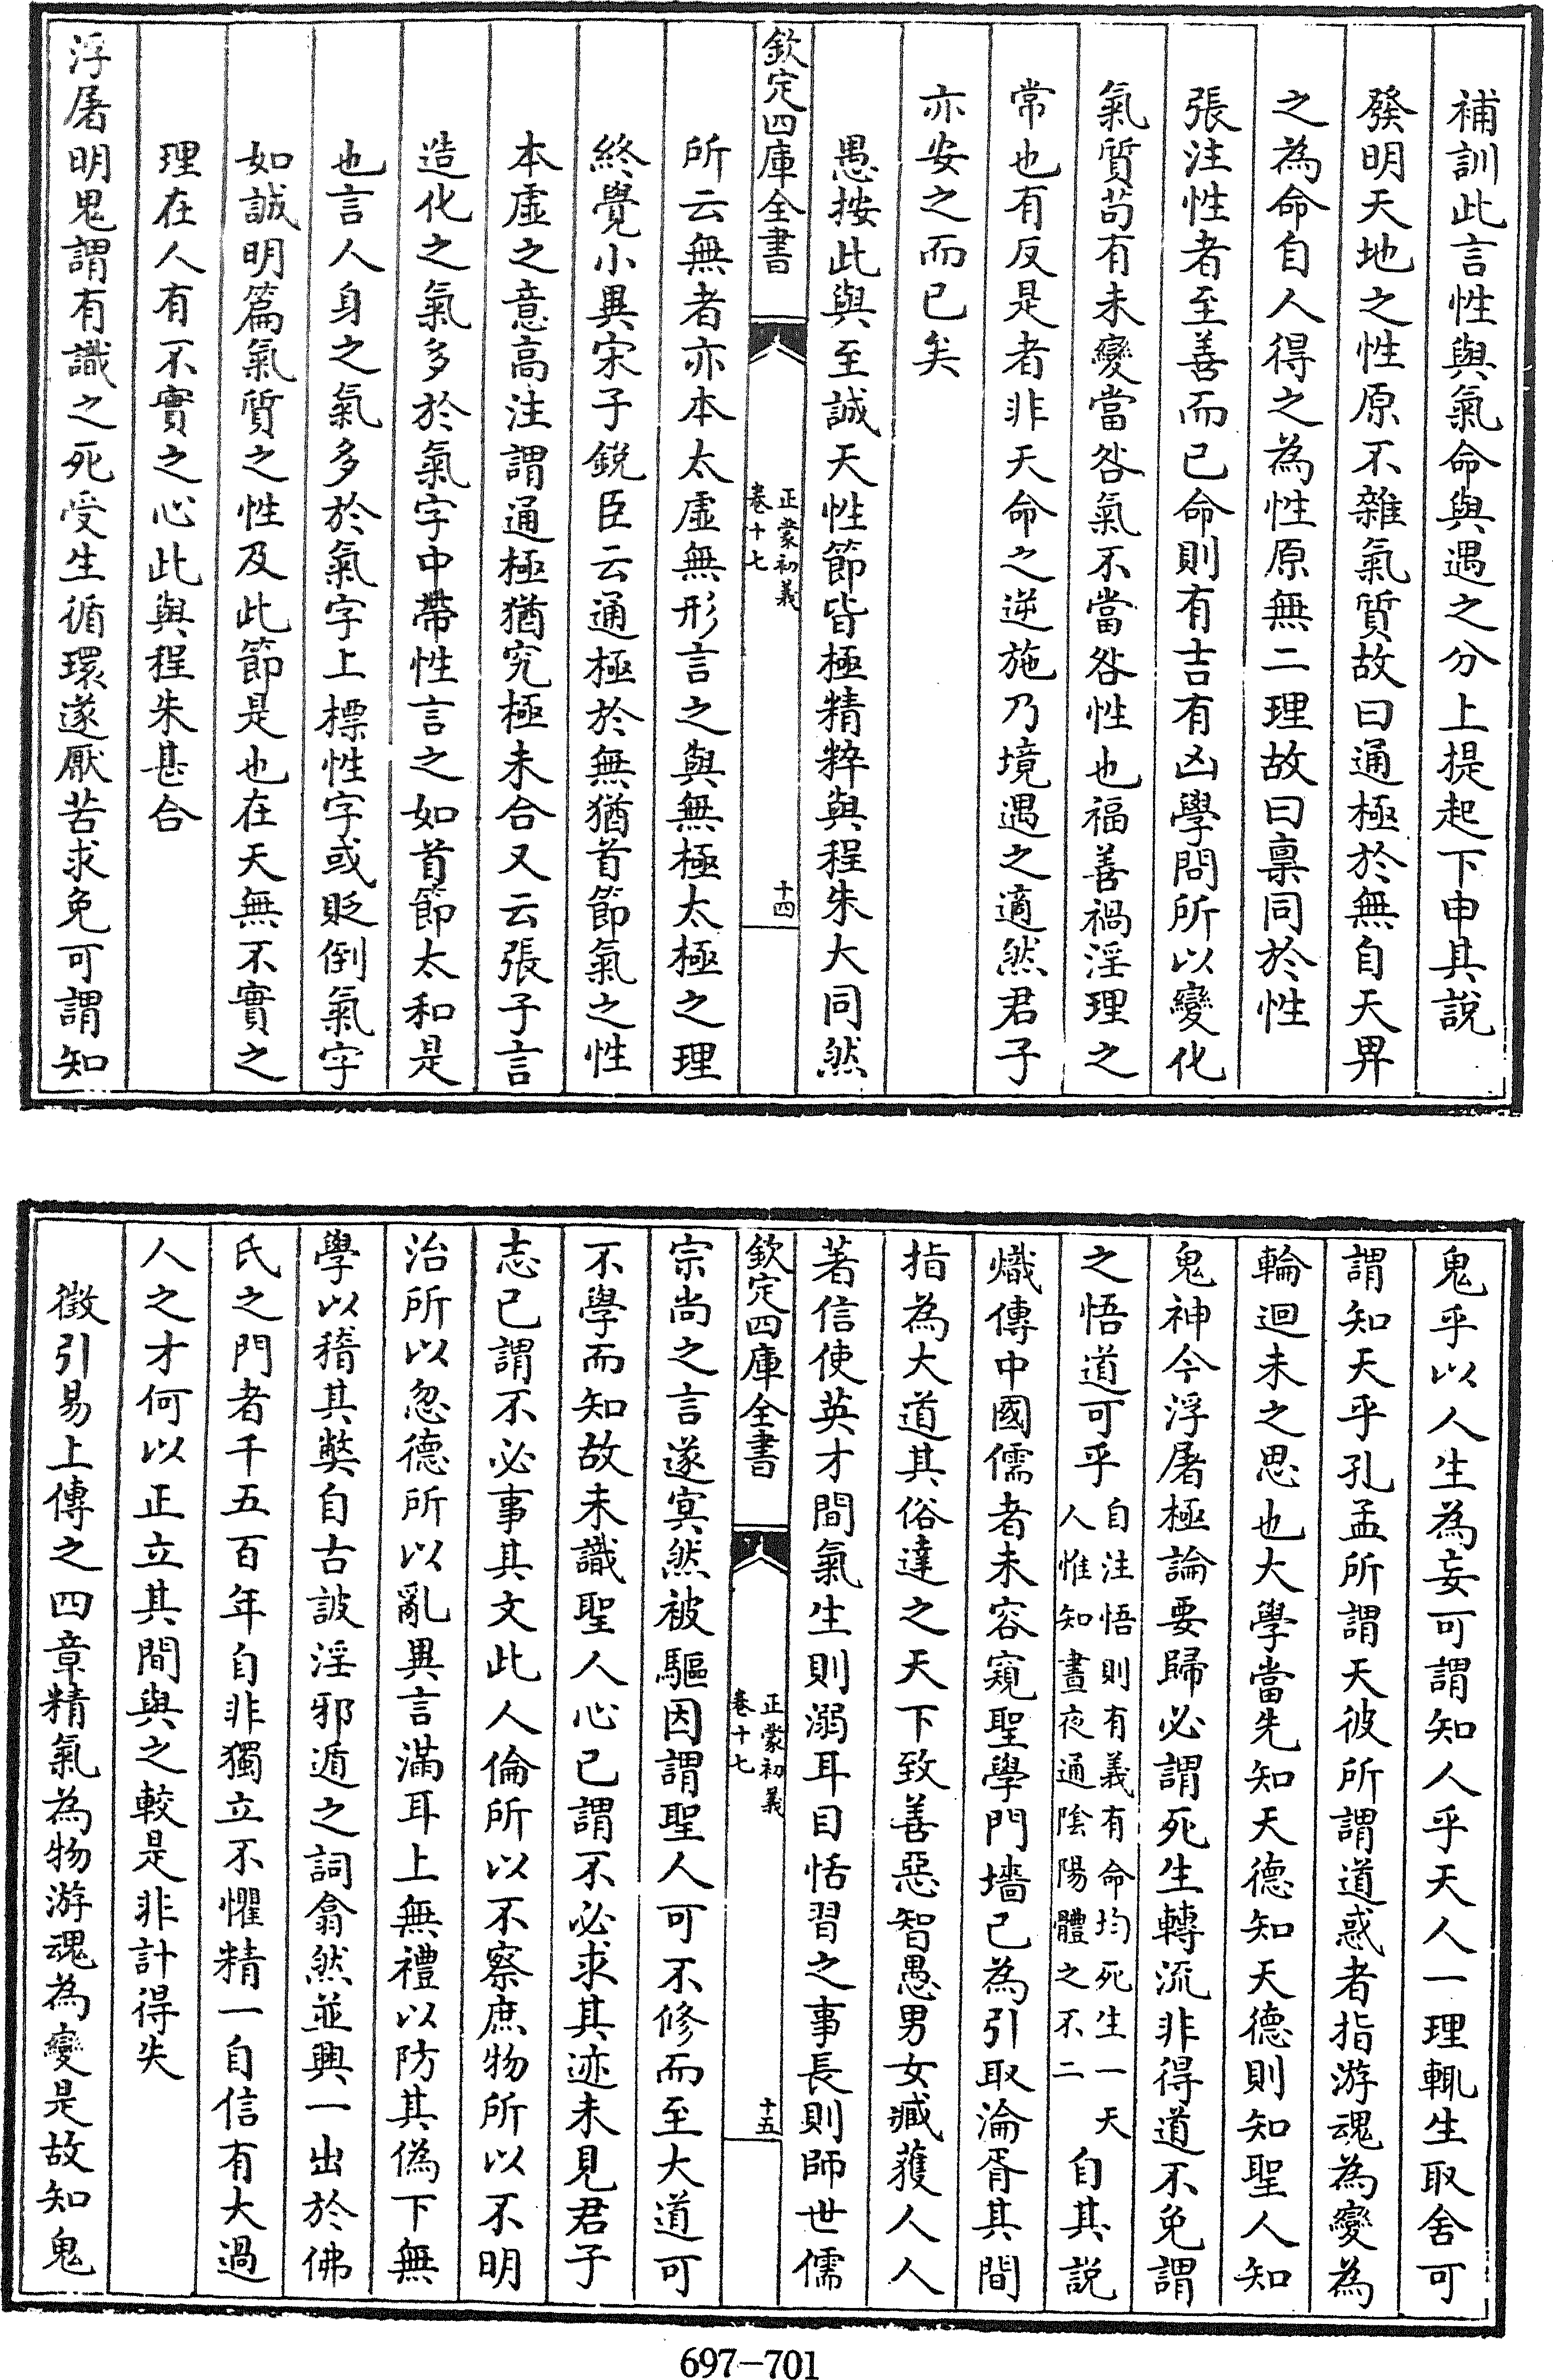 補訓此言性與氣命與遇之分上提起下申其說
發明天地之性原不雜氣質故曰通極於無自天畀
之為命自人得之為性原無二理故曰稟同於性
張注性者至善而已命則有吉有凶學問所以變化
氣質苟有未變當咎氣不當咎性也福善禍淫理之
常也有反是者非天命之逆施乃境遇之適然君子
亦安之而已矣
愚按此與至誠天性節皆極精粹與程朱大同然
欽定四庫全書
正蒙初義
卷十七
十四
所云無者亦本太虛無形言之與無極太極之理
終覺小異宋子銳臣云通極於無猶首節氣之性
本虛之意高注謂通極猶究極未合又云張子言
造化之氣多於氣字中帶性言之如首節太和是
也言人身之氣多於氣字上標性字或貶倒氣字
如誠明篇氣質之性及此節是也在天無不實之
理在人有不實之心此與程朱甚合
浮屠明鬼謂有識之死受生循環遂厭苦求免可謂知
鬼乎以人生為妄可謂知人乎天人一理輒生取舍可
謂知天乎孔孟所謂天彼所謂道惑者指游魂為變為
輪迴未之思也大學當先知天德知天德則知聖人知
鬼神今浮屠極論要歸必謂死生轉流非得道不免謂
之悟道可乎自注悟則有義有命均死生一天人惟知晝夜通陰陽體之不二自其說
熾傳中國儒者未容窺聖學門墻已為引取淪胥其間
指為大道其俗達之天下致善惡智愚男女臧獲人人
著信使英才間氣生則溺耳目恬習之事長則師世儒
欽定四庫全書
正蒙初義
卷十七
十五
宗尚之言遂冥然被驅因謂聖人可不修而至大道可
不學而知故未識聖人心已謂不必求其迹未見君子
志已謂不必事其文此人倫所以不察庶物所以不明
治所以忽德所以亂異言滿耳上無禮以防其偽下無
學以稽其獘自古詖淫邪遁之詞翕然並興一出於佛
氏之門者千五百年自非獨立不懼精一自信有大過
人之才何以正立其間與之較是非計得失
徵引易上傳之四章精氣為物游魂為變是故知鬼
697-701